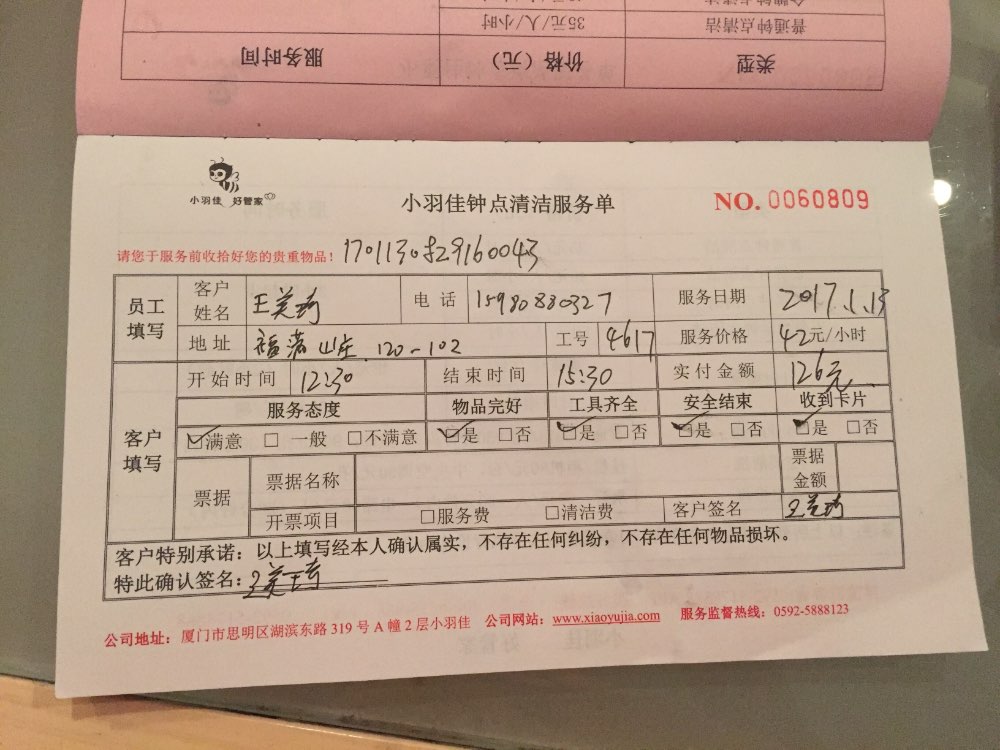 普通钟点清洁 35元/人/小时
类型 价格（元） 服务时间
小羽佳 好管家
小羽佳钟点清洁服务单 NO. 0060809
请您于服务前收拾好您的贵重物品！
员工填写 客户姓名 王美琦 电话 15980880327 服务日期 2017.1.13
地址 120-102 工号 4617 服务价格 42元/小时
客户填写 开始时间 12:30 结束时间 15:30 实付金额 126元
服务态度 物品完好 工具齐全 安全结束 收到卡片
☑满意 □一般 □不满意 ☑是 □否 ☑是 □否 ☑是 □否 ☑是 □否
票据 票据名称 票据金额
开票项目 □服务费 □清洁费 客户签名 王美琦
客户特别承诺：以上填写经本人确认属实，不存在任何纠纷，不存在任何物品损坏。
特此确认签名：王美琦
公司地址：厦门市思明区湖滨东路 319 号 A 幢 2 层小羽佳 公司网站：www.xiaoyujia.com 服务监督热线：0592-5888123